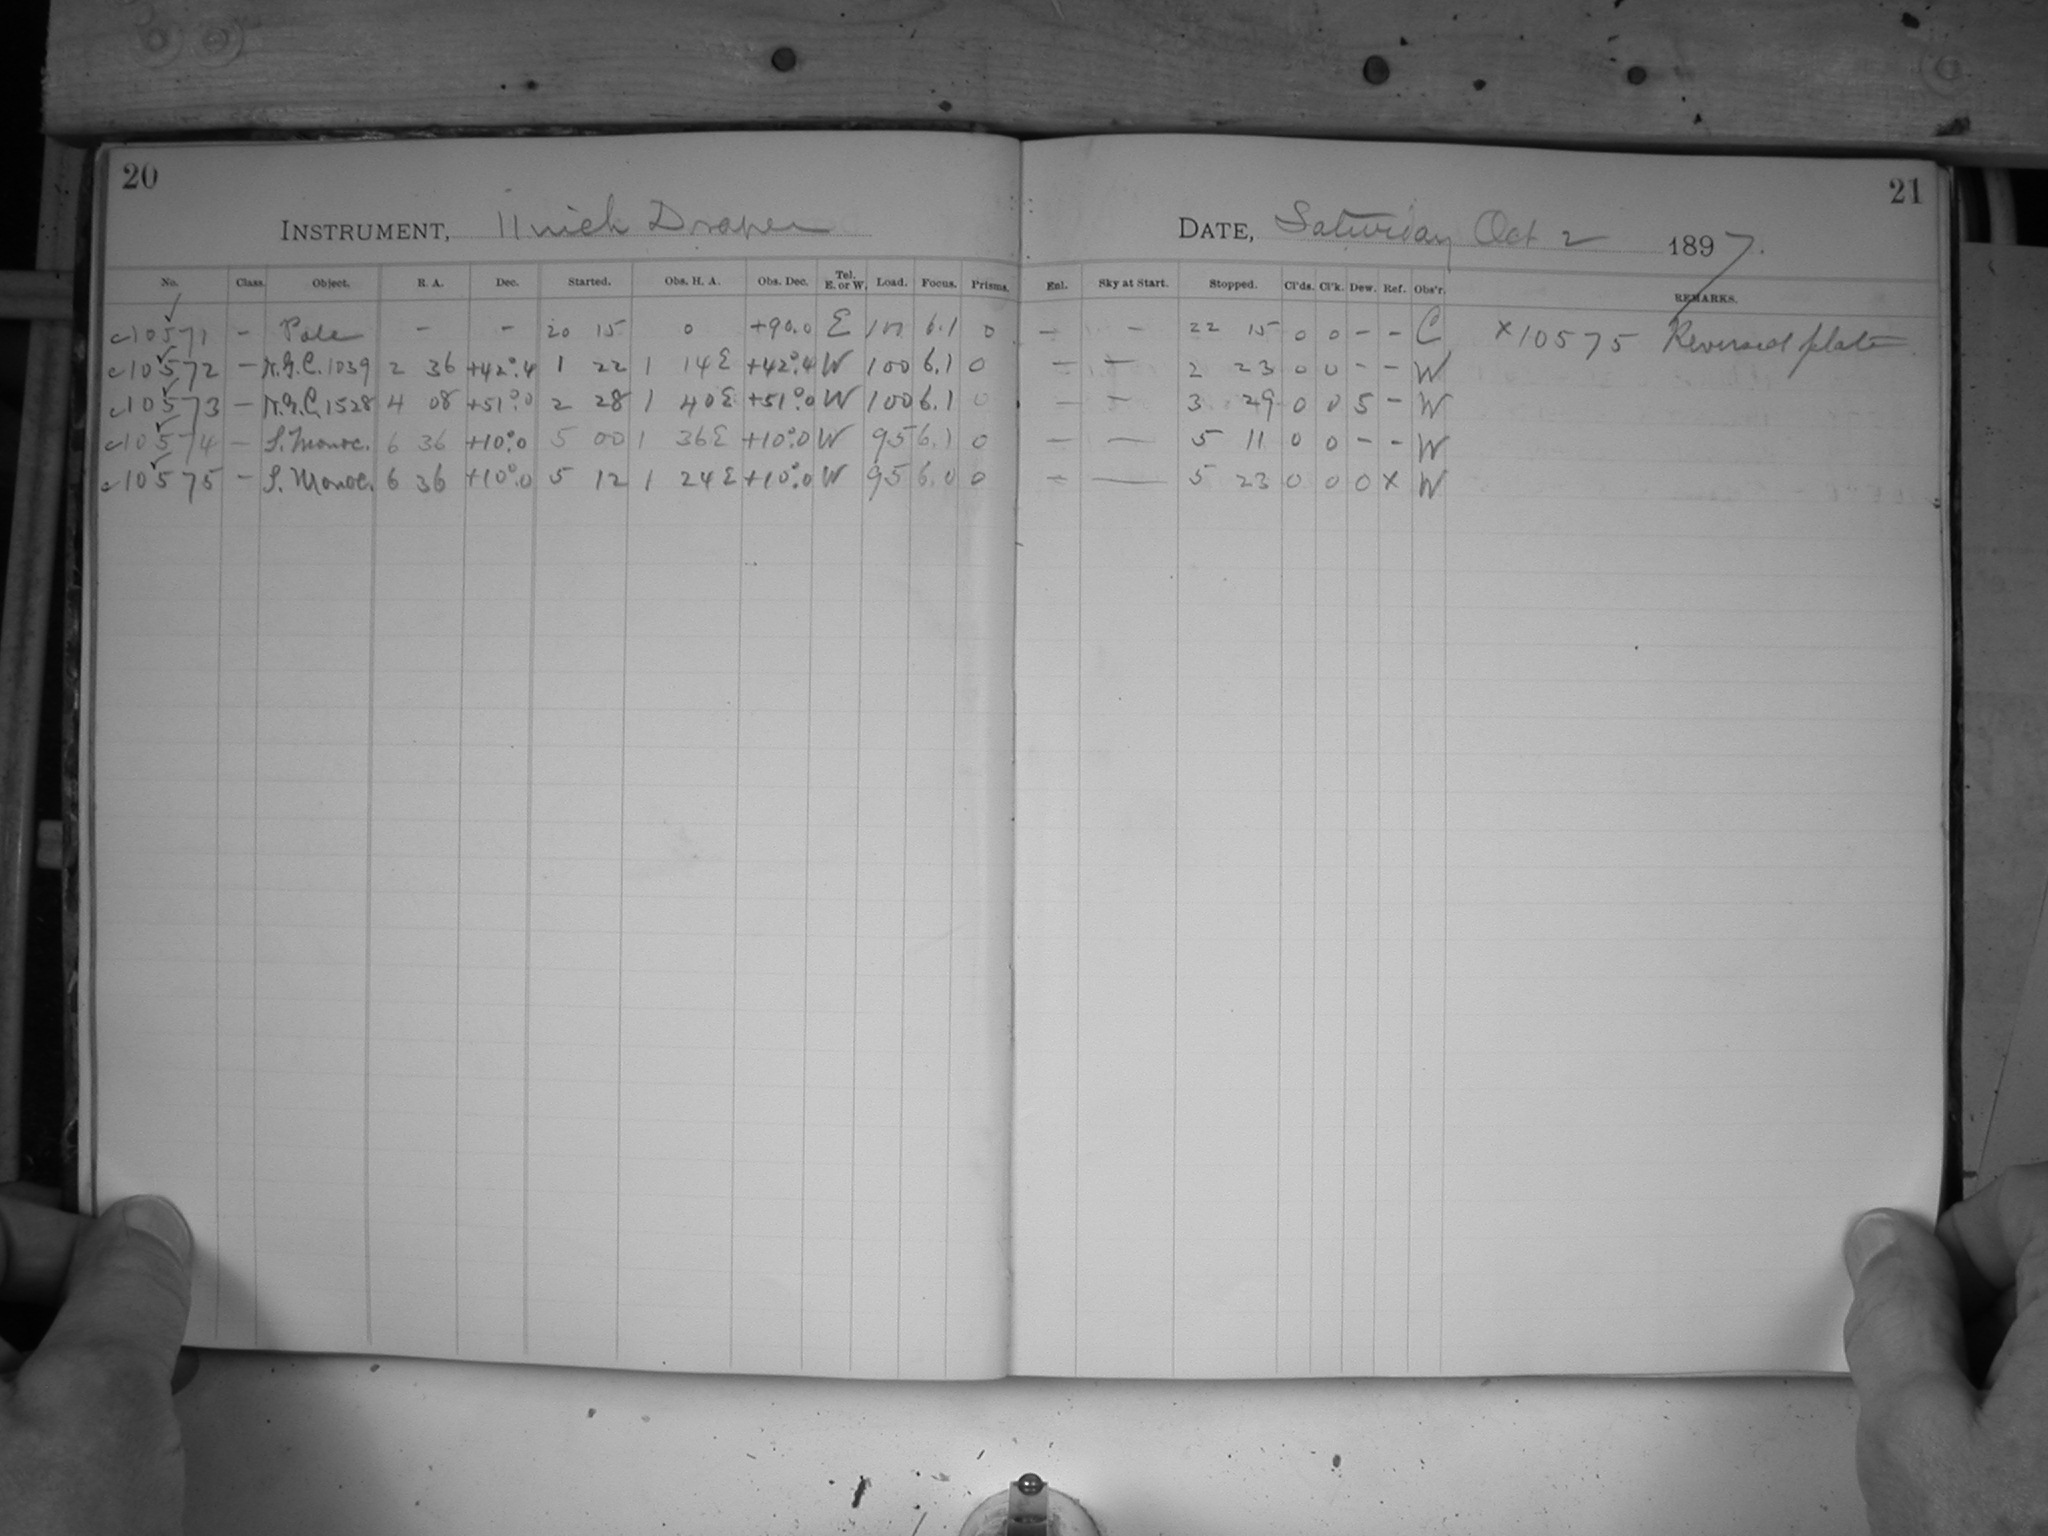 20
INSTRUMENT, 11 inch Draper
No. Class. Object. R. A. Dec. Started. Obs. H. A. Obs. Dec. Tel. E. or W. Load. Focus. Prisms.
c10571 - Pole - - 20 15 0 +90.0 E 100 6.1 0
c10572 - N.G.C. 1039 2 36 +42°.4 1 22 1 14 E +42°.4 W 100 6.1 0
c10573 - N.G.C. 1528 4 08 +51°.0 2 28 1 40 E +51°.0 W 100 6.1 0
c10574 - S. Monoc. 6 36 +10°.0 5 00 1 36 E +10°.0 W 95 6.1 0
c10575 - S. Monoc. 6 36 +10°.0 5 12 1 24 E +10°.0 W 95 6.0 0
21
DATE, Saturday Oct 2 1897.
Enl. Sky at Start. Stopped. Cl'ds. Cl'k. Dew. Ref. Obs'r. REMARKS.
- - 22 15 0 0 - - C x10575 Reversed plate
- - 2 23 0 0 - - W
- - 3 29 0 0 5 - W
- - 5 11 0 0 - - W
- - 5 23 0 0 0 x W